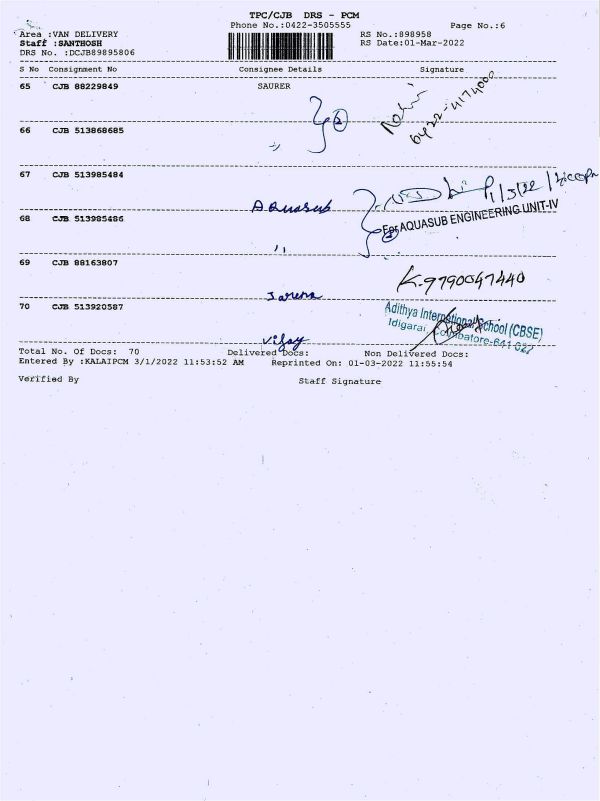 TPC/CJB DRS - PCM
Phone No.:0422-3505555
Page No.:6
Area :VAN DELIVERY
RS No.:898958
Staff :SANTHOSH
RS Date:01-Mar-2022
DRS No. :DCJB89895806
S No Consignment No Consignee Details Signature
65 CJB 88229849 SAURER
66 CJB 513868685
67 CJB 513985484
Aquasub
68 CJB 513985486
For AQUASUB ENGINEERING UNIT-IV
69 CJB 88163807
K-9790047440
70 CJB 513920587
Adithya International School (CBSE)
Idigarai, Coimbatore-641 022
Vijay
Total No. Of Docs: 70 Delivered Docs: Non Delivered Docs:
Entered By :KALAIPCM 3/1/2022 11:53:52 AM Reprinted On: 01-03-2022 11:55:54
Verified By Staff Signature